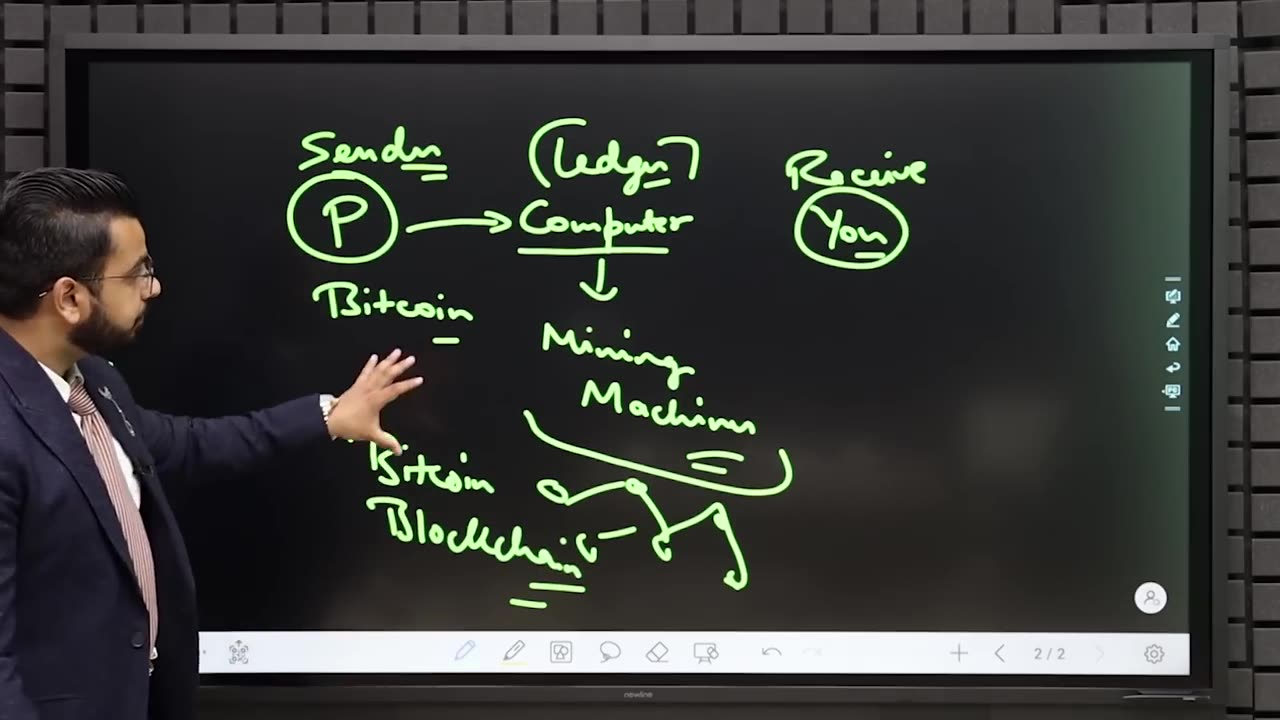 Sender (Ledger) Receive
P Computer You
Bitcoin
Mining
Machines
Bitcoin
Blockchain
2/2
newline